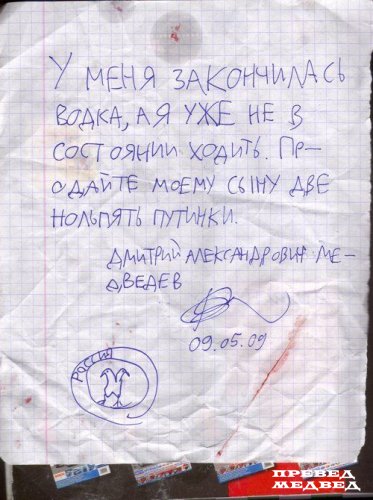 У МЕНЯ ЗАКОНЧИЛАСЬ
ВОДКА, А Я УЖЕ НЕ В
СОСТОЯНИИ ХОДИТЬ. ПР-
ОДАЙТЕ МОЕМУ СЫНУ ДВЕ
НОЛЬПЯТЬ ПУТИНКИ.
ДМИТРИЙ АЛЕКСАНДРОВИЧ МЕ-
ДВЕДЕВ
09.05.09
РОССИЯ
ПРЕВЕД
МЕДВЕД